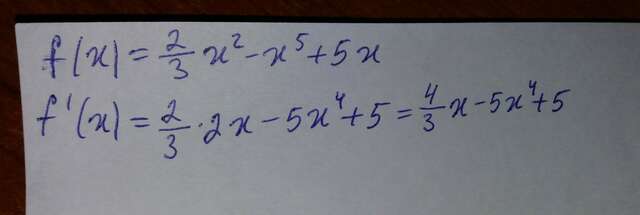 f(x) = 2/3 x² - x⁵ + 5x
f'(x) = 2/3 · 2x - 5x⁴ + 5 = 4/3 x - 5x⁴ + 5